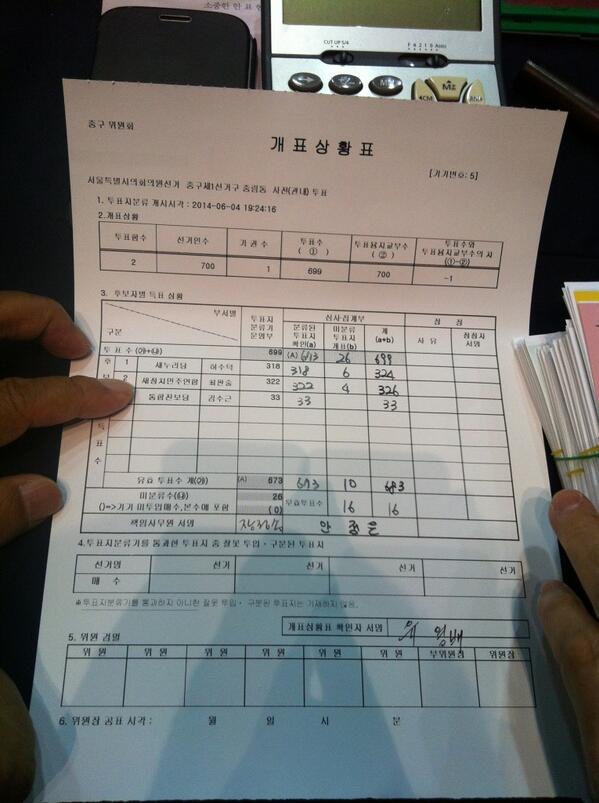 소중한 한 표
CUT UP 5/4
F 4 2 1 0 ADD2
M2
중구 위원회
개표상황표
[기기번호: 5]
서울특별시의회의원선거 중구제1선거구 중림동 사전(관내) 투표
1. 투표지분류 개시시각 : 2014-06-04 19:24:16
2.개표상황
투표함수 선거인수 기권수 투표수 (①) 투표용지교부수 (②) 투표수와 투표용지교부수의 차 (①-②)
2 700 1 699 700 -1
3. 후보자별 득표 상황
구분 부서별 투표지 분류기 운영부 심사·집계부 정 정
분류된 투표지 확인(a) 미분류 투표지 개표(b) 계 (a+b) 사 유 정정자 서명
투표수 (㉮+㉯) 699 (A) 673 26 699
1 새누리당 허수덕 318 318 6 324
2 새정치민주연합 최판술 322 322 4 326
통합진보당 김수근 33 33 33
득 표 수
유효 투표수 계(㉮) (A) 673 673 10 683
미분류수(㉯) 26
()=>기기 미투입매수,본수에 포함 (0) 무효투표수 16 16
책임사무원 서명
4.투표지분류기를 통과한 투표지 중 잘못 투입·구분된 투표지
선거명 선거 선거 선거 선거
매 수
※투표지분류기를 통과하지 아니한 잘못 투입· 구분된 투표지는 기재하지 않음.
개표상황표 확인자 서명
5. 위원 검열
위 원 위 원 위 원 위 원 위 원 위 원 부위원장 위원장
6. 위원장 공표 시각 : 월 일 시 분